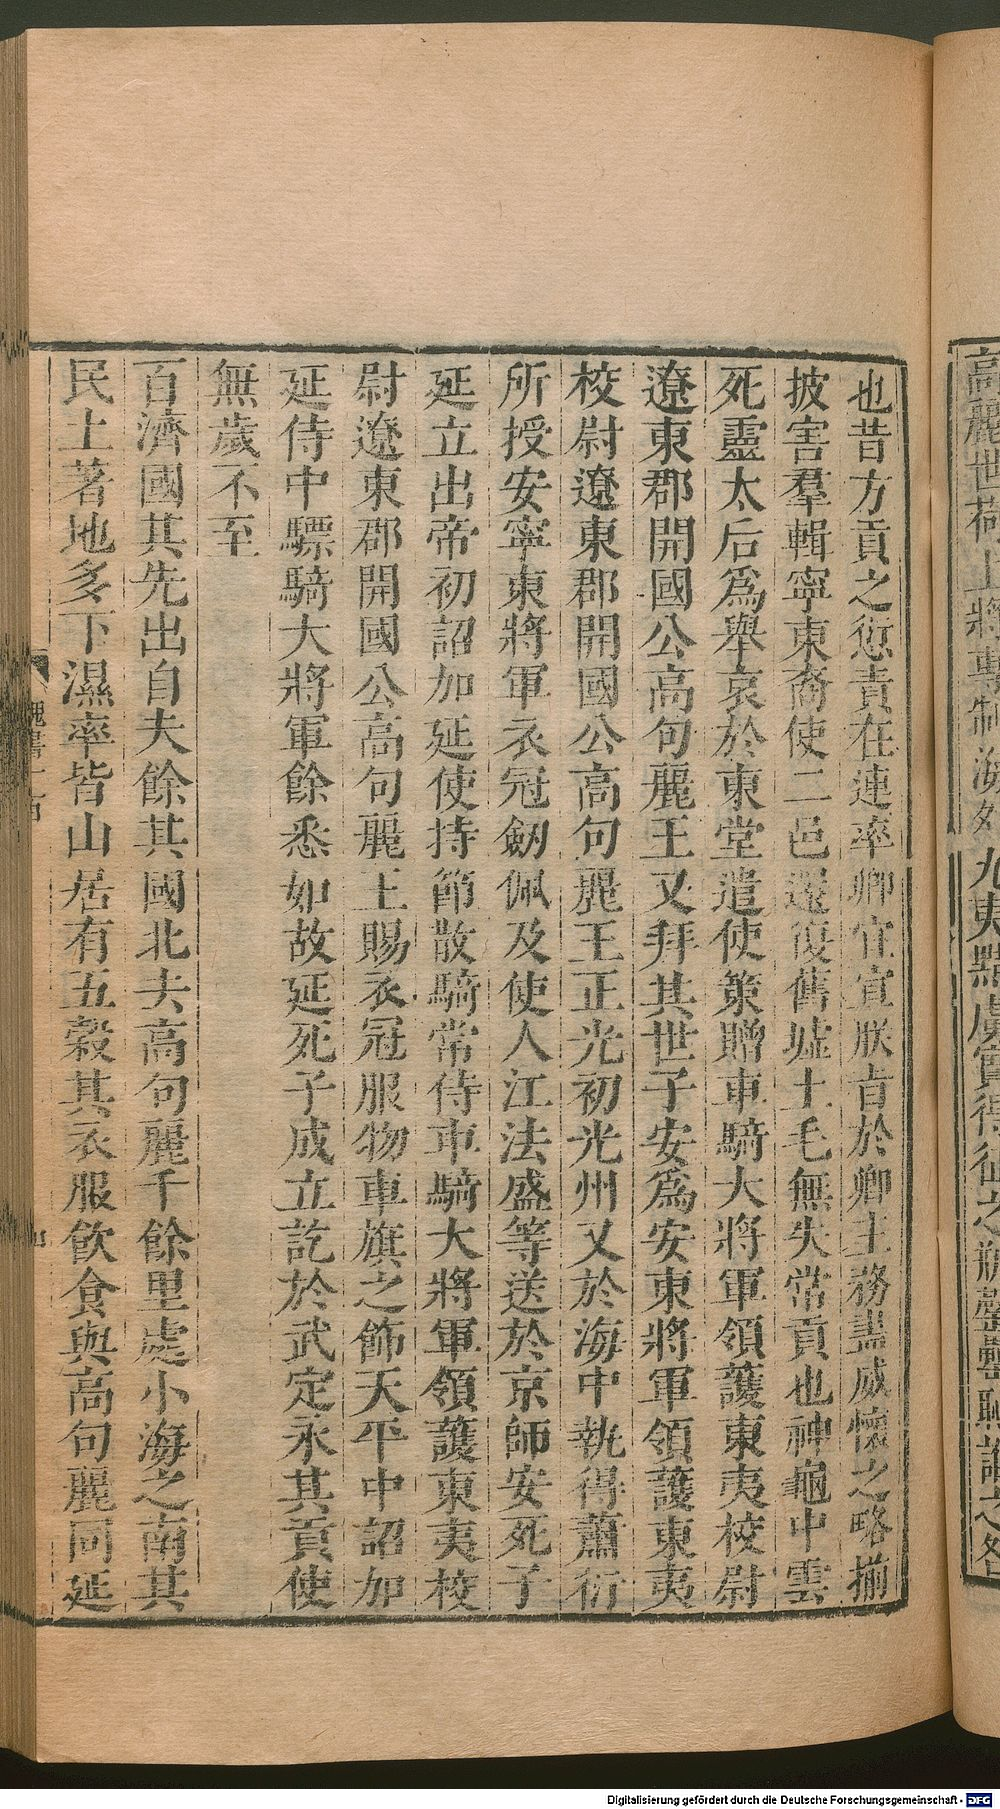 高麗世荷上將專制海外九夷黠虜實得征之瓶罄罍恥誰之咎
也昔方貢之愆責在連率卿宜宣朕㫖於卿主務盡威懷之略揃
披害羣輯寧東裔使二邑還復舊墟土毛無失常貢也神龜中雲
死靈太后爲舉哀於東堂遣使策贈車騎大將軍領護東夷校尉
遼東郡開國公高句麗王又拜其世子安爲安東將軍領護東夷
校尉遼東郡開國公高句麗王正光初光州又於海中執得蕭衍
所授安寧東將軍衣冠劒佩及使人江法盛等送於京師安死子
延立出帝初詔加延使持節散騎常侍車騎大將軍領護東夷校
尉遼東郡開國公高句麗王賜衣冠服物車旗之飾天平中詔加
延侍中驃騎大將軍餘悉如故延死子成立訖於武定末其貢使
無歲不至
百濟國其先出自夫餘其國北去高句麗千餘里處小海之南其
民土著地多下濕率皆山居有五穀其衣服飲食與高句麗同延
Digitalisierung gefördert durch die Deutsche Forschungsgemeinschaft - DFG